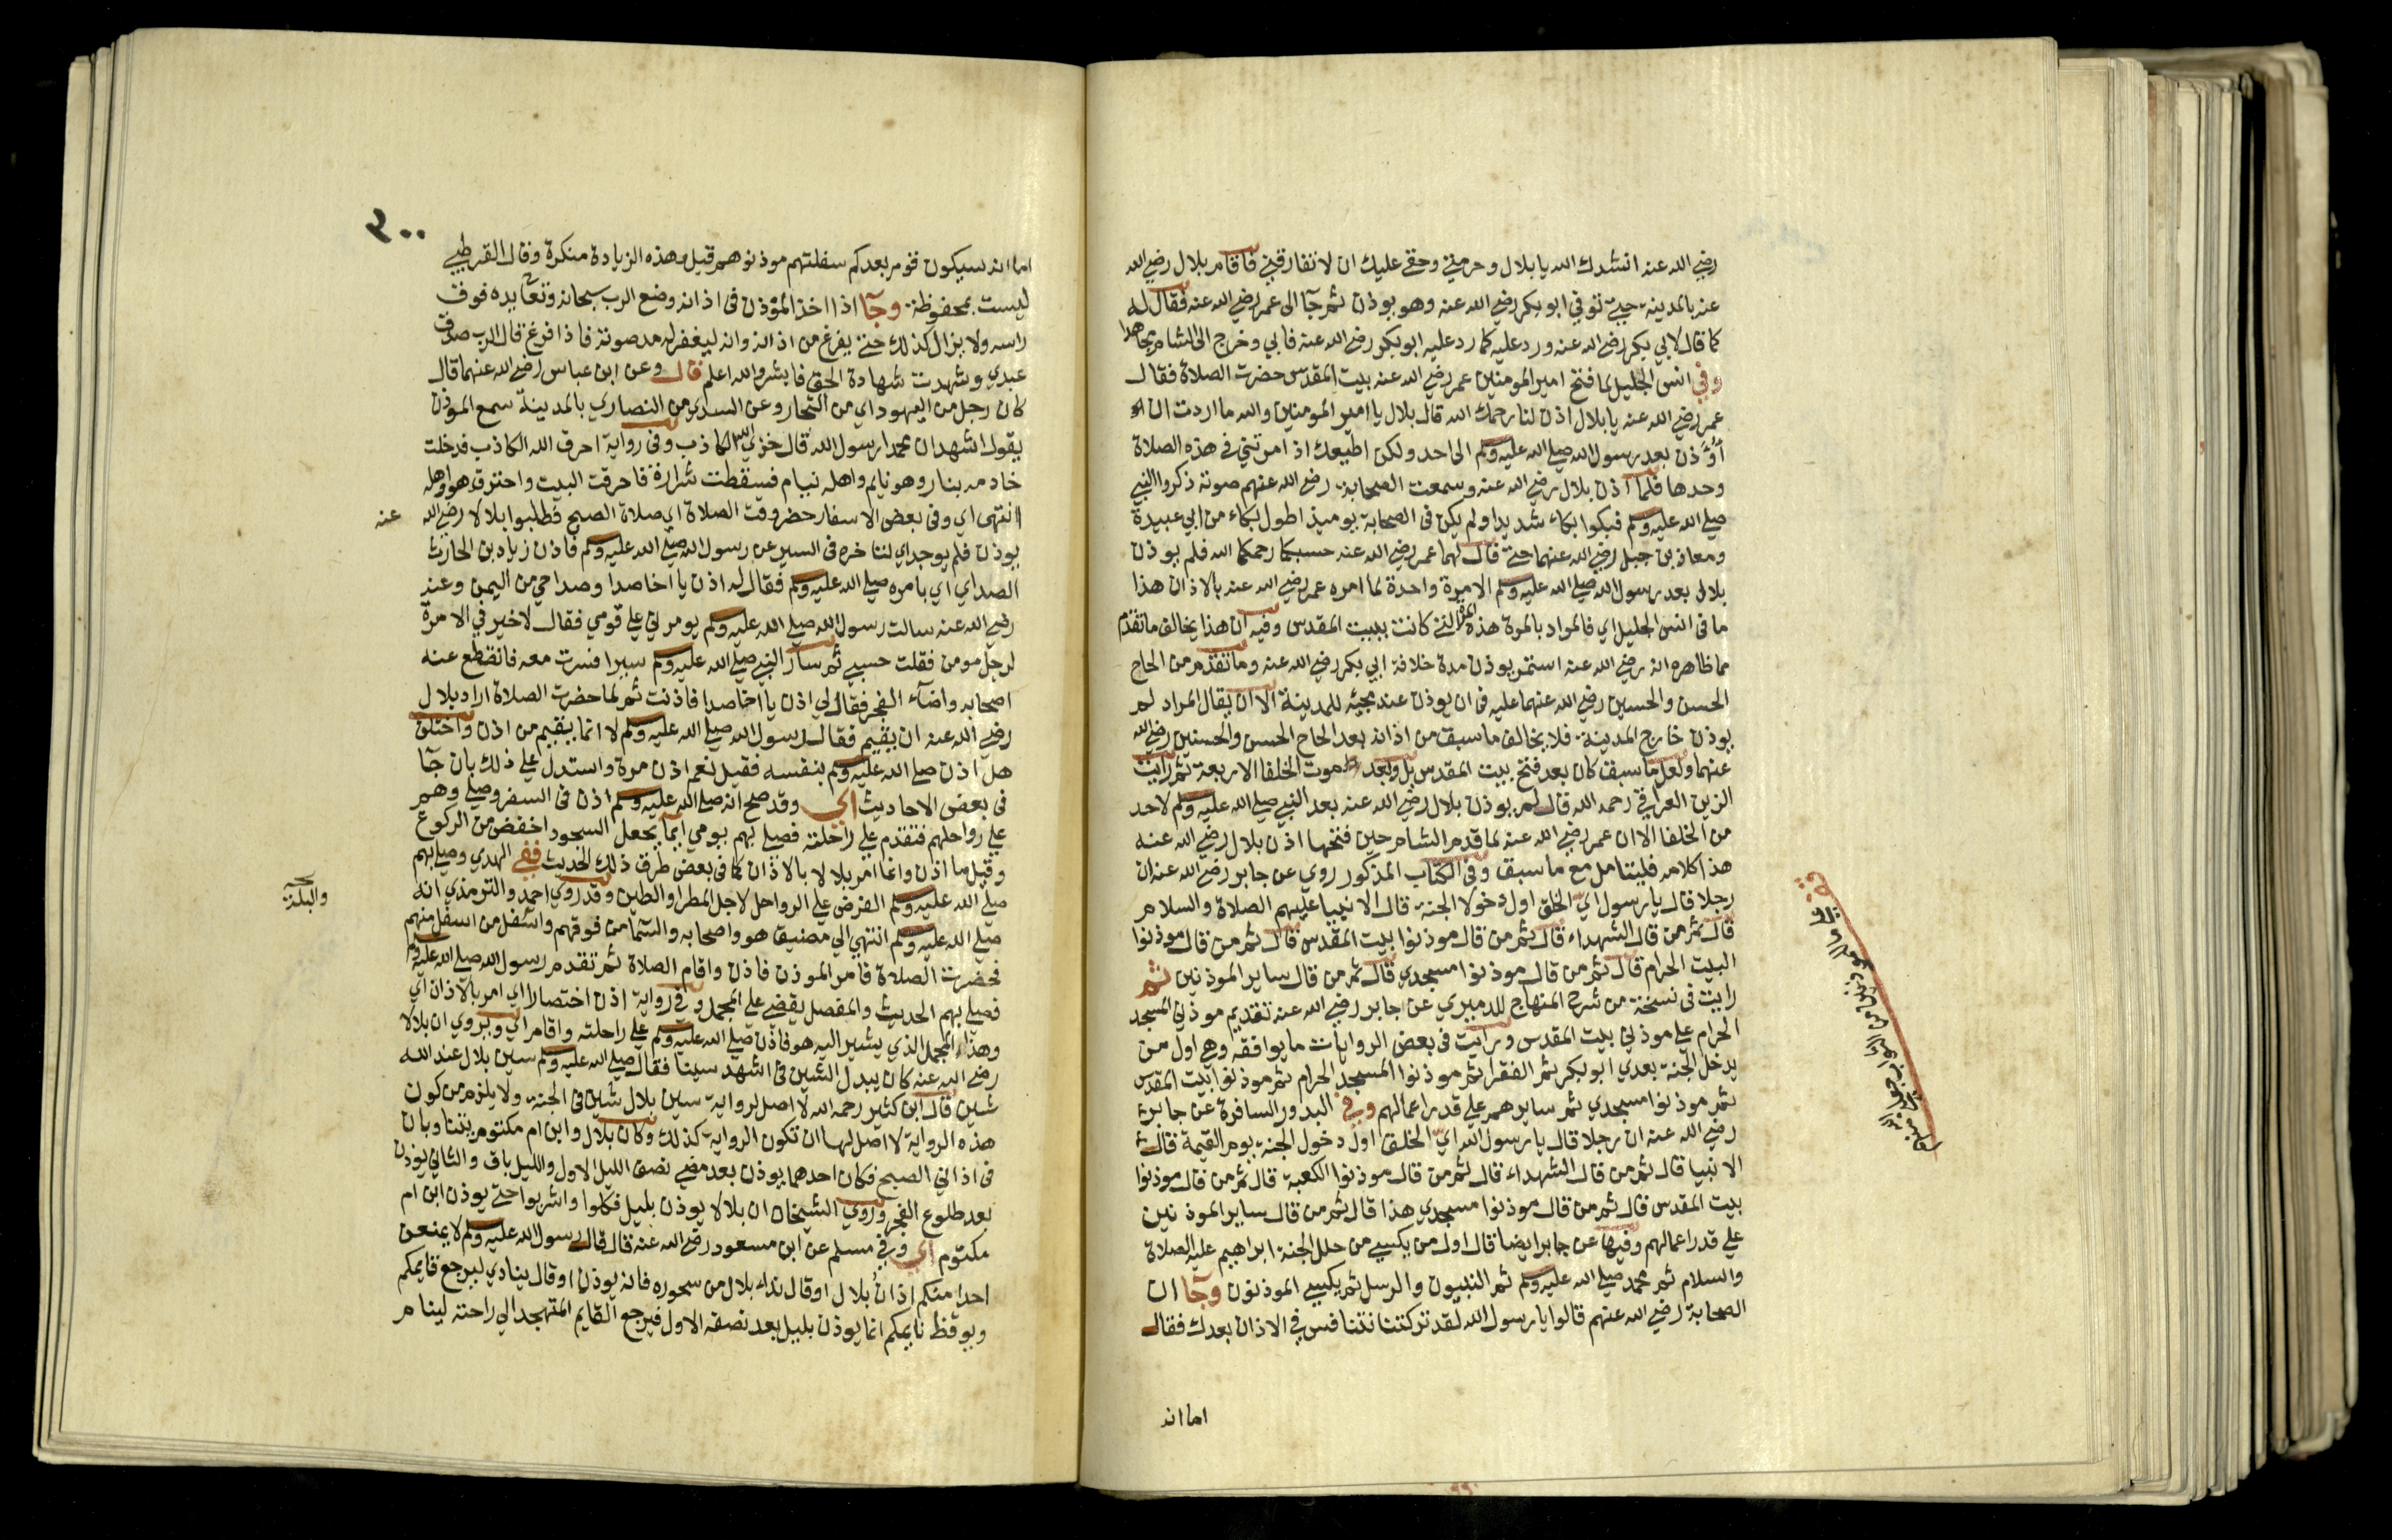 رضي الله عنه انشدك الله يا بلال وحرمتي وحقي عليك ان لا تفارقني فاقام بلال رضي الله
عنه بالمدينة حتى توفي ابو بكر رضي الله عنه وهو يوذن ثم جآ الى عمر رضي الله عنه فقال له
كما قال لابي بكر رضي الله عنه ورد عليه كما رد عليه ابو بكر رضي الله عنه فابي وخرج الى الشام مجاهدا
وفي انس الجليل لما فتح امير المومنين عمر رضي الله عنه بيت المقدس حضرت الصلاة فقال
عمر رضي الله عنه يا بلال اذن لنا رحمك الله قال بلال يا امير المومنين والله ما اردت ان
أُوَذن بعد رسول الله صلي الله عليه وسلم الى احد ولكن اطيعك اذ امرتني في هذه الصلاة
وحدها فلما اذن بلال رضي الله عنه وسمعت الصحابة رضي الله عنهم صوته ذكروا النبي
صلي الله عليه وسلم فبكوا بكاء شديدا ولم يكن فى الصحابة يوميذ اطول بكاء من ابي عبيدة
ومعاذ بن جبل رضي الله عنهما حتى قال لهما عمر رضي الله عنه حسبكما رحمكما الله فلم يوذن
بلال بعد رسول الله صلي الله عليه وسلم الا مرة واحدة لما امره عمر رضي الله عنه بالاذان هذا
ما فى انس الجليل اي فالمراد بالمرة هذه المرة التي كانت ببيت المقدس وفيه ان هذا يخالف ما تقدم
مما ظاهره انه رضي الله عنه استمر يوذن مدة خلافة ابي بكر رضي الله عنه وما تقدم من الحاح
الحسن والحسين رضي الله عنهما عليه فى ان يوذن عند مجيئه للمدينة الا ان يقال المراد لم
يوذن خارج المدينة فلا يخالف ما سبق من اذانه بعد الحاح الحسن والحسين رضي الله
عنهما ولعل ما سبق كان بعد فتح بيت المقدس بل وبعد موت الخلفا الاربعة ثم رايت
الزين العراقي رحمه الله قال لم يوذن بلال رضي الله عنه بعد النبي صلي الله عليه وسلم لاحد
من الخلفا الا ان عمر رضي الله عنه لما قدم الشام حين فتحها اذن بلال رضي الله عنه
هذا كلامه فليتامل مع ما سبق وفى الكتاب المذكور روي عن جابر رضي الله عنه ان
رجلا قال يا رسول اي الخلق اول دخولا الجنة قال الانبيا عليهم الصلاة والسلام
قال ثم من قال الشهداء قال ثم من قال موذنوا بيت المقدس قال ثم من قال موذنوا
البيت الحرام قال ثم من قال موذنوا مسجدي قال ثم من قال ساير الموذنين ثم
رايت فى نسخة من شرح المنهاج للدميري عن جابر رضي الله عنه تقديم موذني المسجد
الحرام علي موذني بيت المقدس ورايت فى بعض الروايات ما يوافقه وهي اول من
يدخل الجنة بعدي ابو بكر ثم الفقرا ثم موذنوا المسجد الحرام ثم موذنوا بيت المقدس
ثم موذنوا مسجدي ثم سايرهم علي قدر اعمالهم وفي البدور السافرة عن جابر
رضي الله عنه ان رجلا قال يا رسول الله اي الخلق اول دخول الجنة يوم القيمة قال
الانبيا قال ثم من قال الشهداء قال ثم من قال موذنوا الكعبة قال ثم من قال موذنوا
بيت المقدس قال ثم من قال موذنوا مسجدي هذا قال ثم من قال ساير الموذنين
علي قدر اعمالهم وفيها عن جابر ايضا قال اول من يكسي من حلل الجنة ابراهيم عليه الصلاة
والسلام ثم محمد صلي الله عليه وسلم ثم النبيون والرسل ثم يكسي الموذنون وجآ ان
الصحابة رضي الله عنهم قالوا يا رسول الله لقد تركتنا نتنافس في الاذان بعدك فقال
اما انه
٢٠٠
اما انه سيكون قوم بعدكم سفلتهم موذنوهم قيل وهذه الزيادة منكرة وقال القرطبي
ليست بمحفوظة وجآ اذا اخذ المؤذن فى اذانه وضع الرب سبحانه وتعالى يده فوق
راسه ولا يزال كذلك حتى يفرغ من اذانه وانه ليغفر له مد صوته فاذا فرغ قال الرب صدق
عبدي وشهدت شهادة الحق فابشر والله اعلم قال وعن ابن عباس رضي الله عنهما قال
كان رجل من اليهود اي من التجار وعن السدي من النصاري بالمدينة سمع الموذن
يقول اشهد ان محمدا رسول الله قال خزي الله الكاذب وفى رواية احرق الله الكاذب فدخلت
خادمه بنار وهو نايم واهله نيام فسقطت شرارة فاحرقت البيت واحترق هو واهله
انتهى اي وفى بعض الاسفار حضر وقت الصلاة اي صلاة الصبح فطلبوا بلالا رضي الله
عنه
يوذن فلم يوجد اي لتاخره فى السير عن رسول الله صلي الله عليه وسلم فاذن زياد بن الحارث
الصداي اي بامره صلي الله عليه وسلم فقال له اذن يا اخا صدا وصدا حي من اليمن وعنه
رضي الله عنه سالت رسول الله صلي الله عليه وسلم يومرني علي قومي فقال لا خير في الامرة
لرجل مومن فقلت حسبي ثم سار النبي صلي الله عليه وسلم سيرا فسرت معه فانقطع عنه
اصحابه واضآء الفجر فقال لي اذن يا اخا صدا فاذنت ثم لما حضرت الصلاة اراد بلال
رضي الله عنه ان يقيم فقال رسول الله صلي الله عليه وسلم لا انما يقيم من اذن واختلف
هل اذن صلي الله عليه وسلم بنفسه فقيل نعم اذن مرة واستدل علي ذلك بان جآ
فى بعض الاحاديث اي وقد صح انه صلي الله عليه وسلم اذن فى السفر وصلي وهم
علي رواحلهم فتقدم علي راحلته فصلي بهم يومي ايمآ يجعل السجود اخفض من الركوع
وقيل ما اذن وانما امر بلالا بالاذان كما فى بعض طرق ذلك الحديث ففي الهدي وصلي بهم
صلي الله عليه وسلم الفرض علي الرواحل لاجل المطر والطين وقد روي احمد والترمذي انه
صلي الله عليه وسلم انتهي الي مضيق هو واصحابه والسما من فوقهم واسفل من اسفل منهم
والبلة
فحضرت الصلاة فامر الموذن فاذن واقام الصلاة ثم تقدم رسول الله صلي الله عليه وسلم
فصلي بهم الحديث والمفصل يقضي علي المجمل وفى رواية اذن اختصارا اي امر بالاذان اي
وهذا المجمل الذي يشير اليه هو فاذن صلي الله عليه وسلم علي راحلته واقام اي ويروي ان بلالا
رضي الله عنه كان يبدل الشين فى اشهد سينا فقال صلي الله عليه وسلم سين بلال عند الله
شين قال ابن كثير رحمه الله لا اصل لرواية سين بلال شين فى الجنة ولا يلزم من كون
هذه الرواية لا اصل لها ان تكون الرواية كذلك وكان بلال وابن ام مكتوم يتناوبان
فى اذاني الصبح فكان احدهما يوذن بعد مضي نصف الليل الاول والليل باق والثاني يوذن
بعد طلوع الفجر وروي الشيخان ان بلالا يوذن بليل فكلوا واشربوا حتى يوذن ابن ام
مكتوم اي وفي مسلم عن ابن مسعود رضي الله عنه قال قال رسول الله عليه وسلم لا يمنعن
احدا منكم اذان بلال او قال نداء بلال من سحوره فانه يوذن او قال ينادي ليرجع قايمكم
ويوقظ نايمكم انما يوذن بليل بعد نصفه الاول فيرجع القايم المتهجد الي راحته لينام